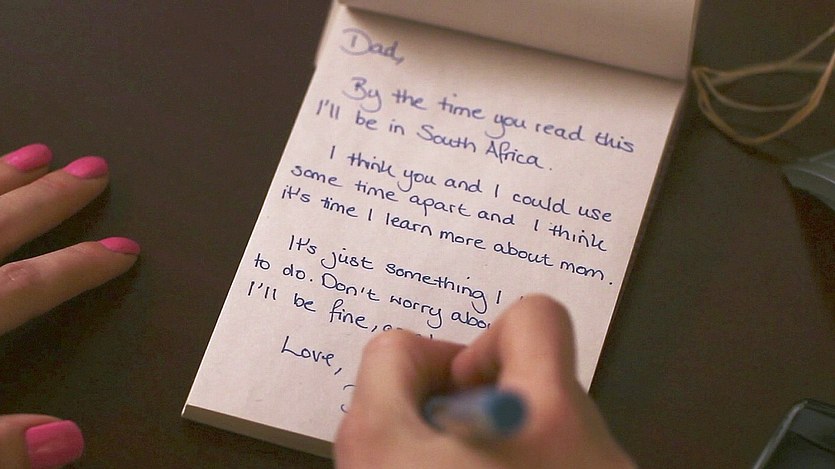 Dad,
By the time you read this
I'll be in South Africa.
I think you and I could use
some time apart and I think
it's time I learn more about mom.
It's just something I
to do. Don't worry
I'll be fine,
Love,